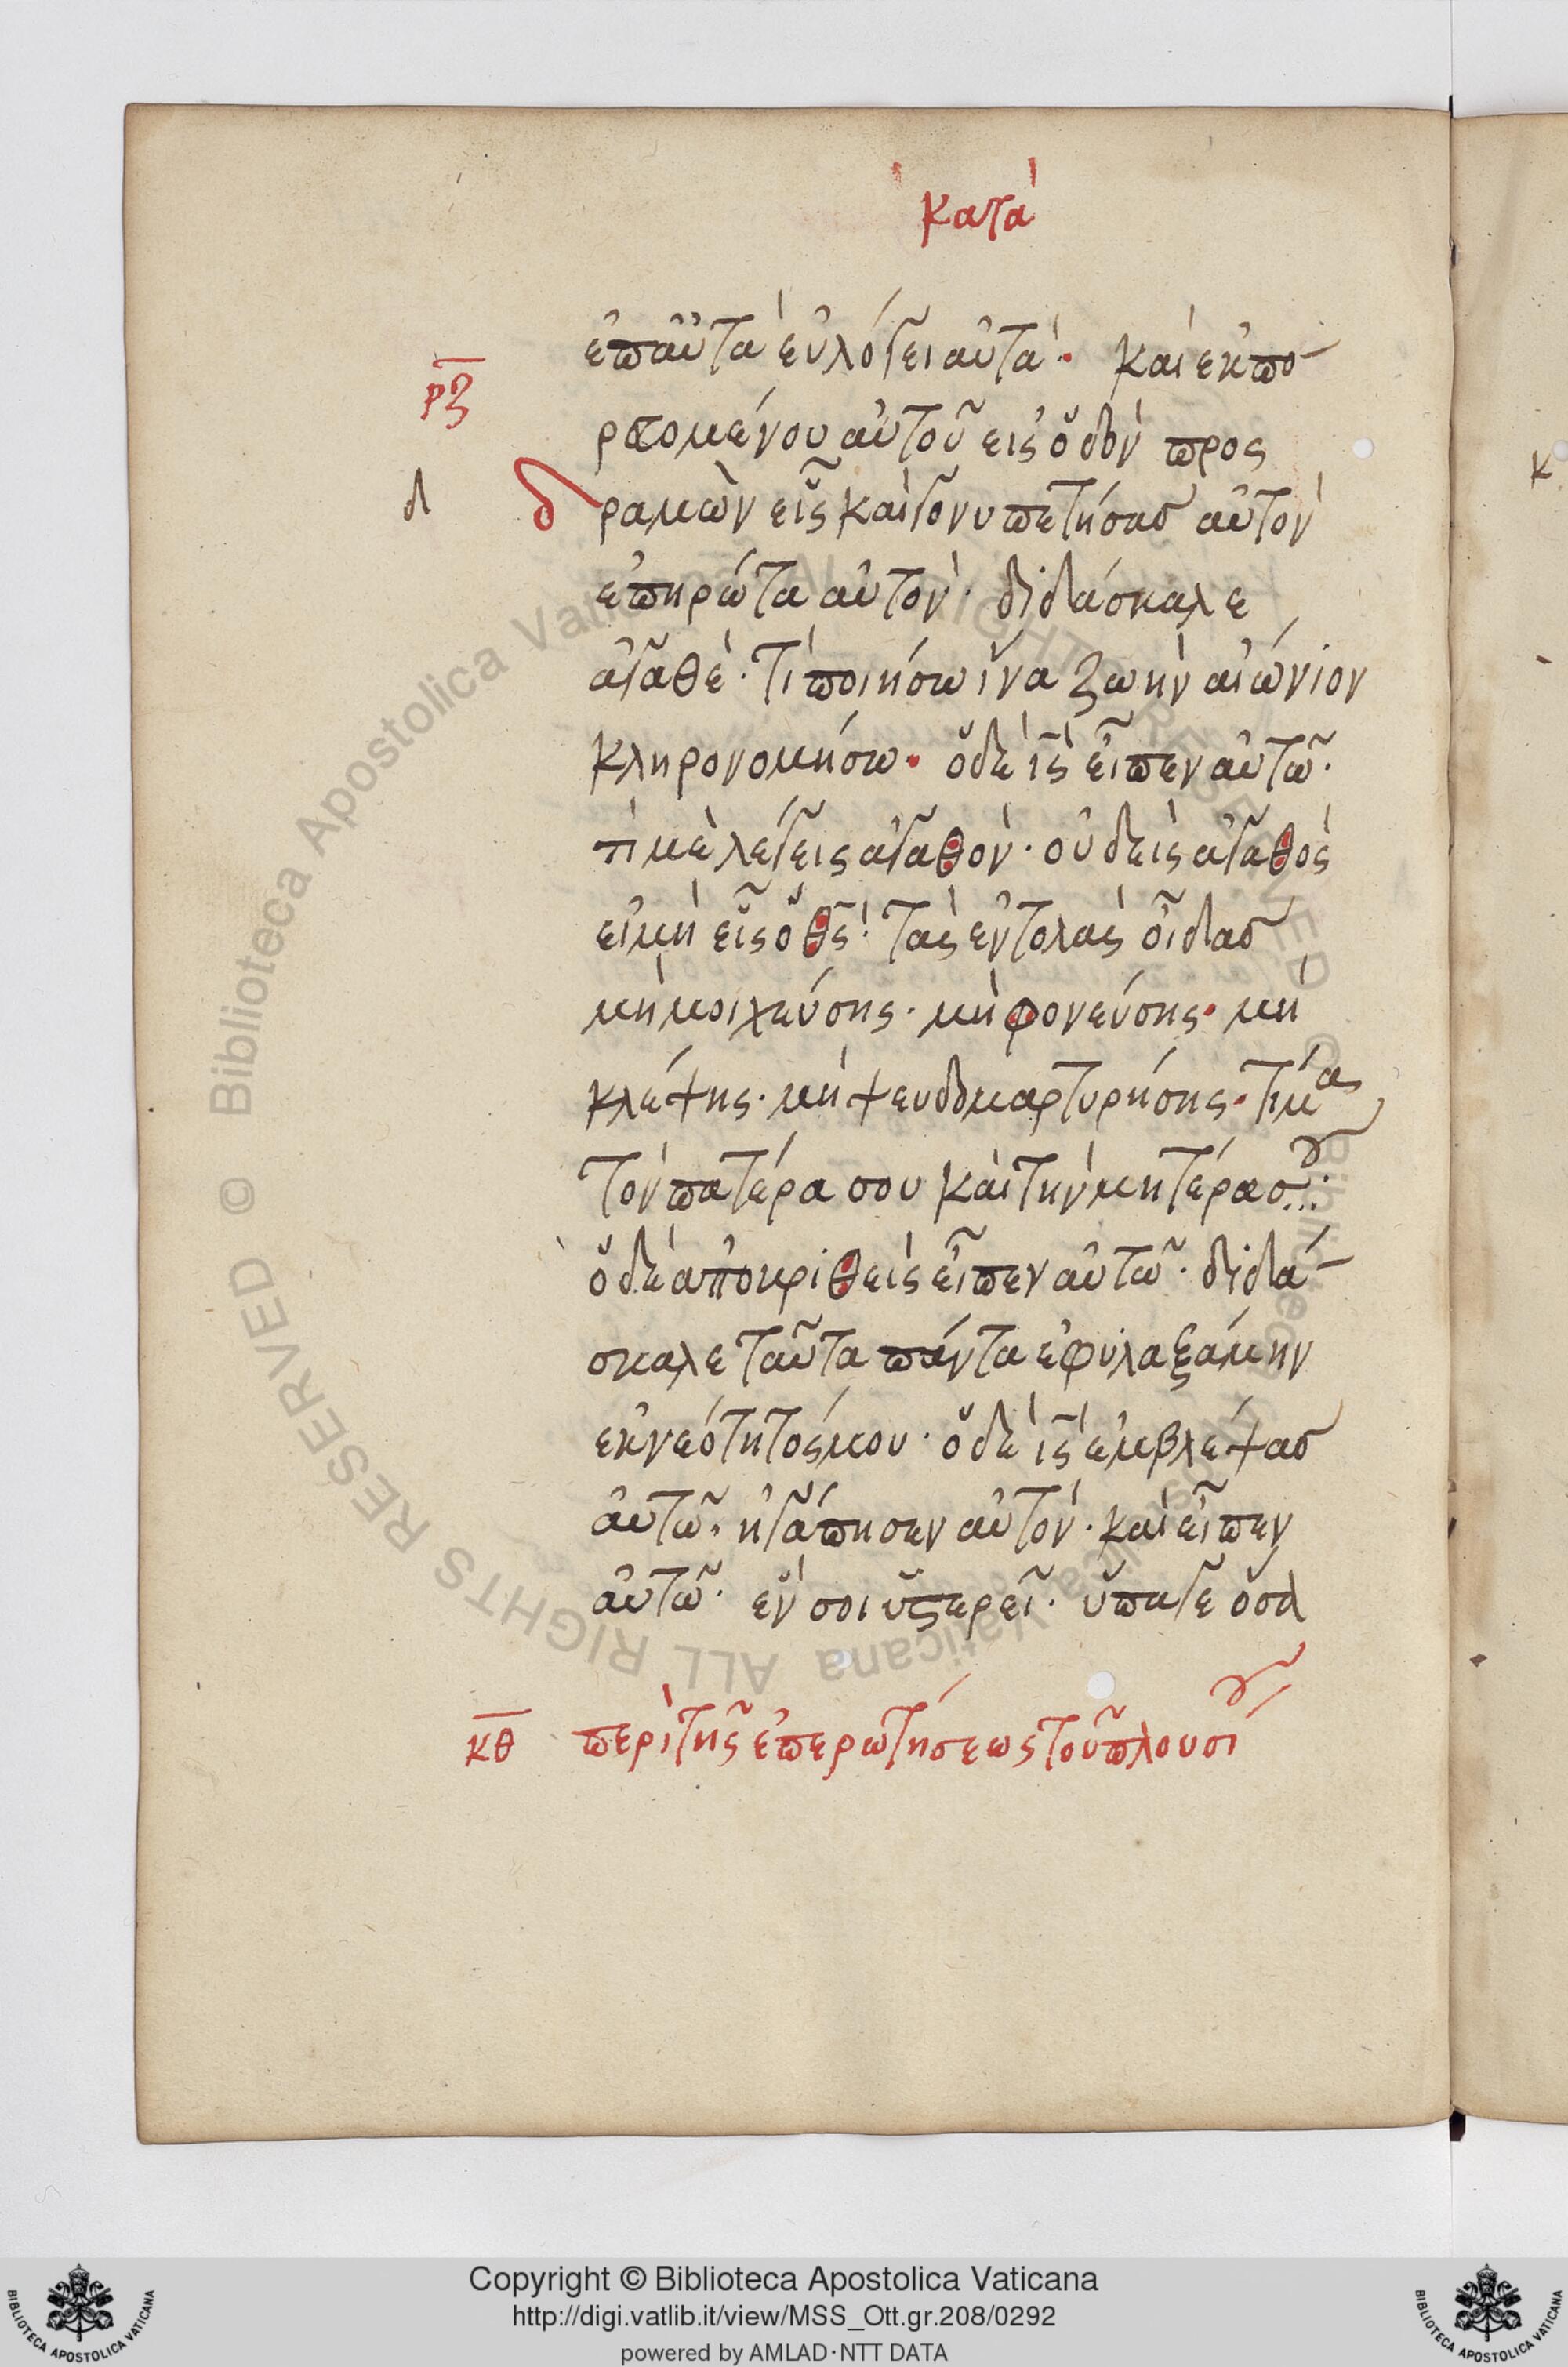 κατὰ
ἐπ' αὐτὰ εὐλόγει αὐτά· καὶ ἐκπο
ρευομένου αὐτοῦ εἰς ὁδὸν προς
δραμὼν εἷς καὶ γονυπετήσας αὐτὸν
ἐπηρώτα αὐτόν· διδάσκαλε
ἀγαθὲ· τί ποιήσω ἵνα ζωὴν αἰώνιον
κληρονομήσω· ὁ δὲ ἰ̅ς̅ εἶπεν αὐτῶ·
τί με λέγεις ἀγαθόν· οὐδεὶς ἀγαθὸς
εἰ μὴ εἷς ὁ θ̅ς̅· τὰς ἐντολὰς οἶδας
μὴ μοιχεύσης· μὴ φονεύσης· μὴ
κλέψης· μὴ ψευδομαρτυρήσης· τίμα
τὸν πατέρα σου καὶ τὴν μητέρα σου·
ὁ δὲ ἀποκριθεὶς εἶπεν αὐτῶ· διδά
σκαλε ταῦτα πάντα ἐφυλαξάμην
ἐκ νεότητός μου· ὁ δὲ ἰ̅ς̅ ἐμβλέψας
αὐτῶ· ἠγάπησεν αὐτόν· καὶ εἶπεν
αὐτῶ· ἕν σοι ὑστερεῖ· ὕπαγε ὅσα
κθ περὶ τῆς ἐπερωτήσεως τοῦ πλουσίου
ρζ
δ
© Biblioteca Apostolica Vaticana ALL RIGHTS RESERVED © Biblioteca Apostolica Vaticana ALL RIGHTS RESERVED
Copyright © Biblioteca Apostolica Vaticana
http://digi.vatlib.it/view/MSS_Ott.gr.208/0292
powered by AMLAD·NTT DATA
BIBLIOTECA APOSTOLICA VATICANA
BIBLIOTECA APOSTOLICA VATICANA